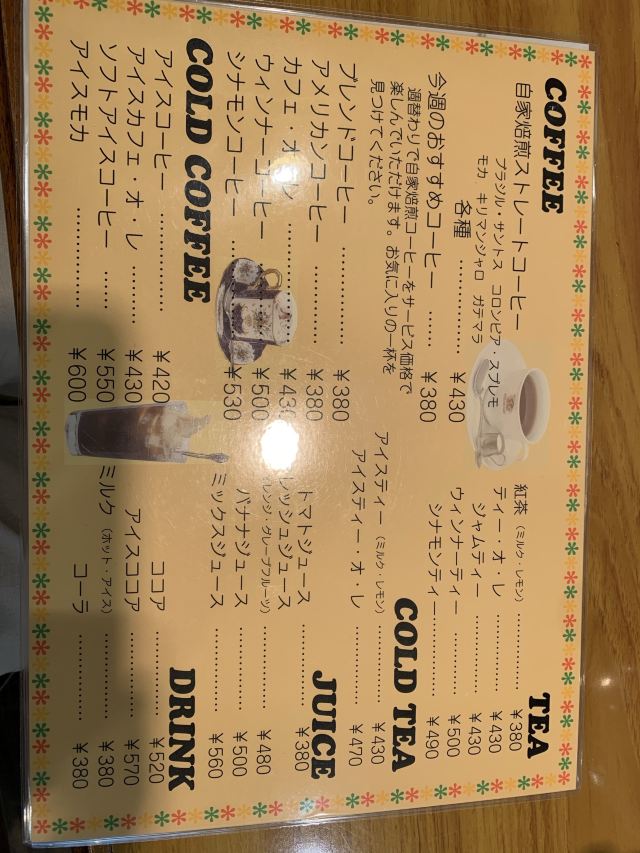 COFFEE
自家焙煎ストレートコーヒー
ブラジル・サントス コロンビア・スプレモ
モカ キリマンジャロ ガテマラ
各種 ………… ￥430
今週のおすすめコーヒー …… ￥380
週替わりで自家焙煎コーヒーをサービス価格で
楽しんでいただけます。お気に入りの一杯を
見つけてください。
ブレンドコーヒー ………… ￥380
アメリカンコーヒー ………… ￥380
カフェ・オ・レ ………… ￥43
ウィンナーコーヒー ………… ￥500
シナモンコーヒー ………… ￥530
COLD COFFEE
アイスコーヒー ………… ￥420
アイスカフェ・オ・レ ………… ￥430
ソフトアイスコーヒー ………… ￥550
アイスモカ ………… ￥600
TEA
紅茶（ミルク・レモン） ………… ￥380
ティー・オ・レ ………… ￥430
シャムティー ………… ￥430
ウィンナーティー ………… ￥500
シナモンティー ………… ￥490
COLD TEA
アイスティー（ミルク・レモン） ……… ￥430
アイスティー・オ・レ ………… ￥470
JUICE
トマトジュース ………… ￥380
レッシュジュース
レンジ・グレープフルーツ） ………… ￥480
バナナジュース ………… ￥500
ミックスジュース ………… ￥560
DRINK
ココア ………… ￥520
アイスココア ………… ￥570
ミルク（ホット・アイス） ………… ￥380
コーラ ………… ￥380